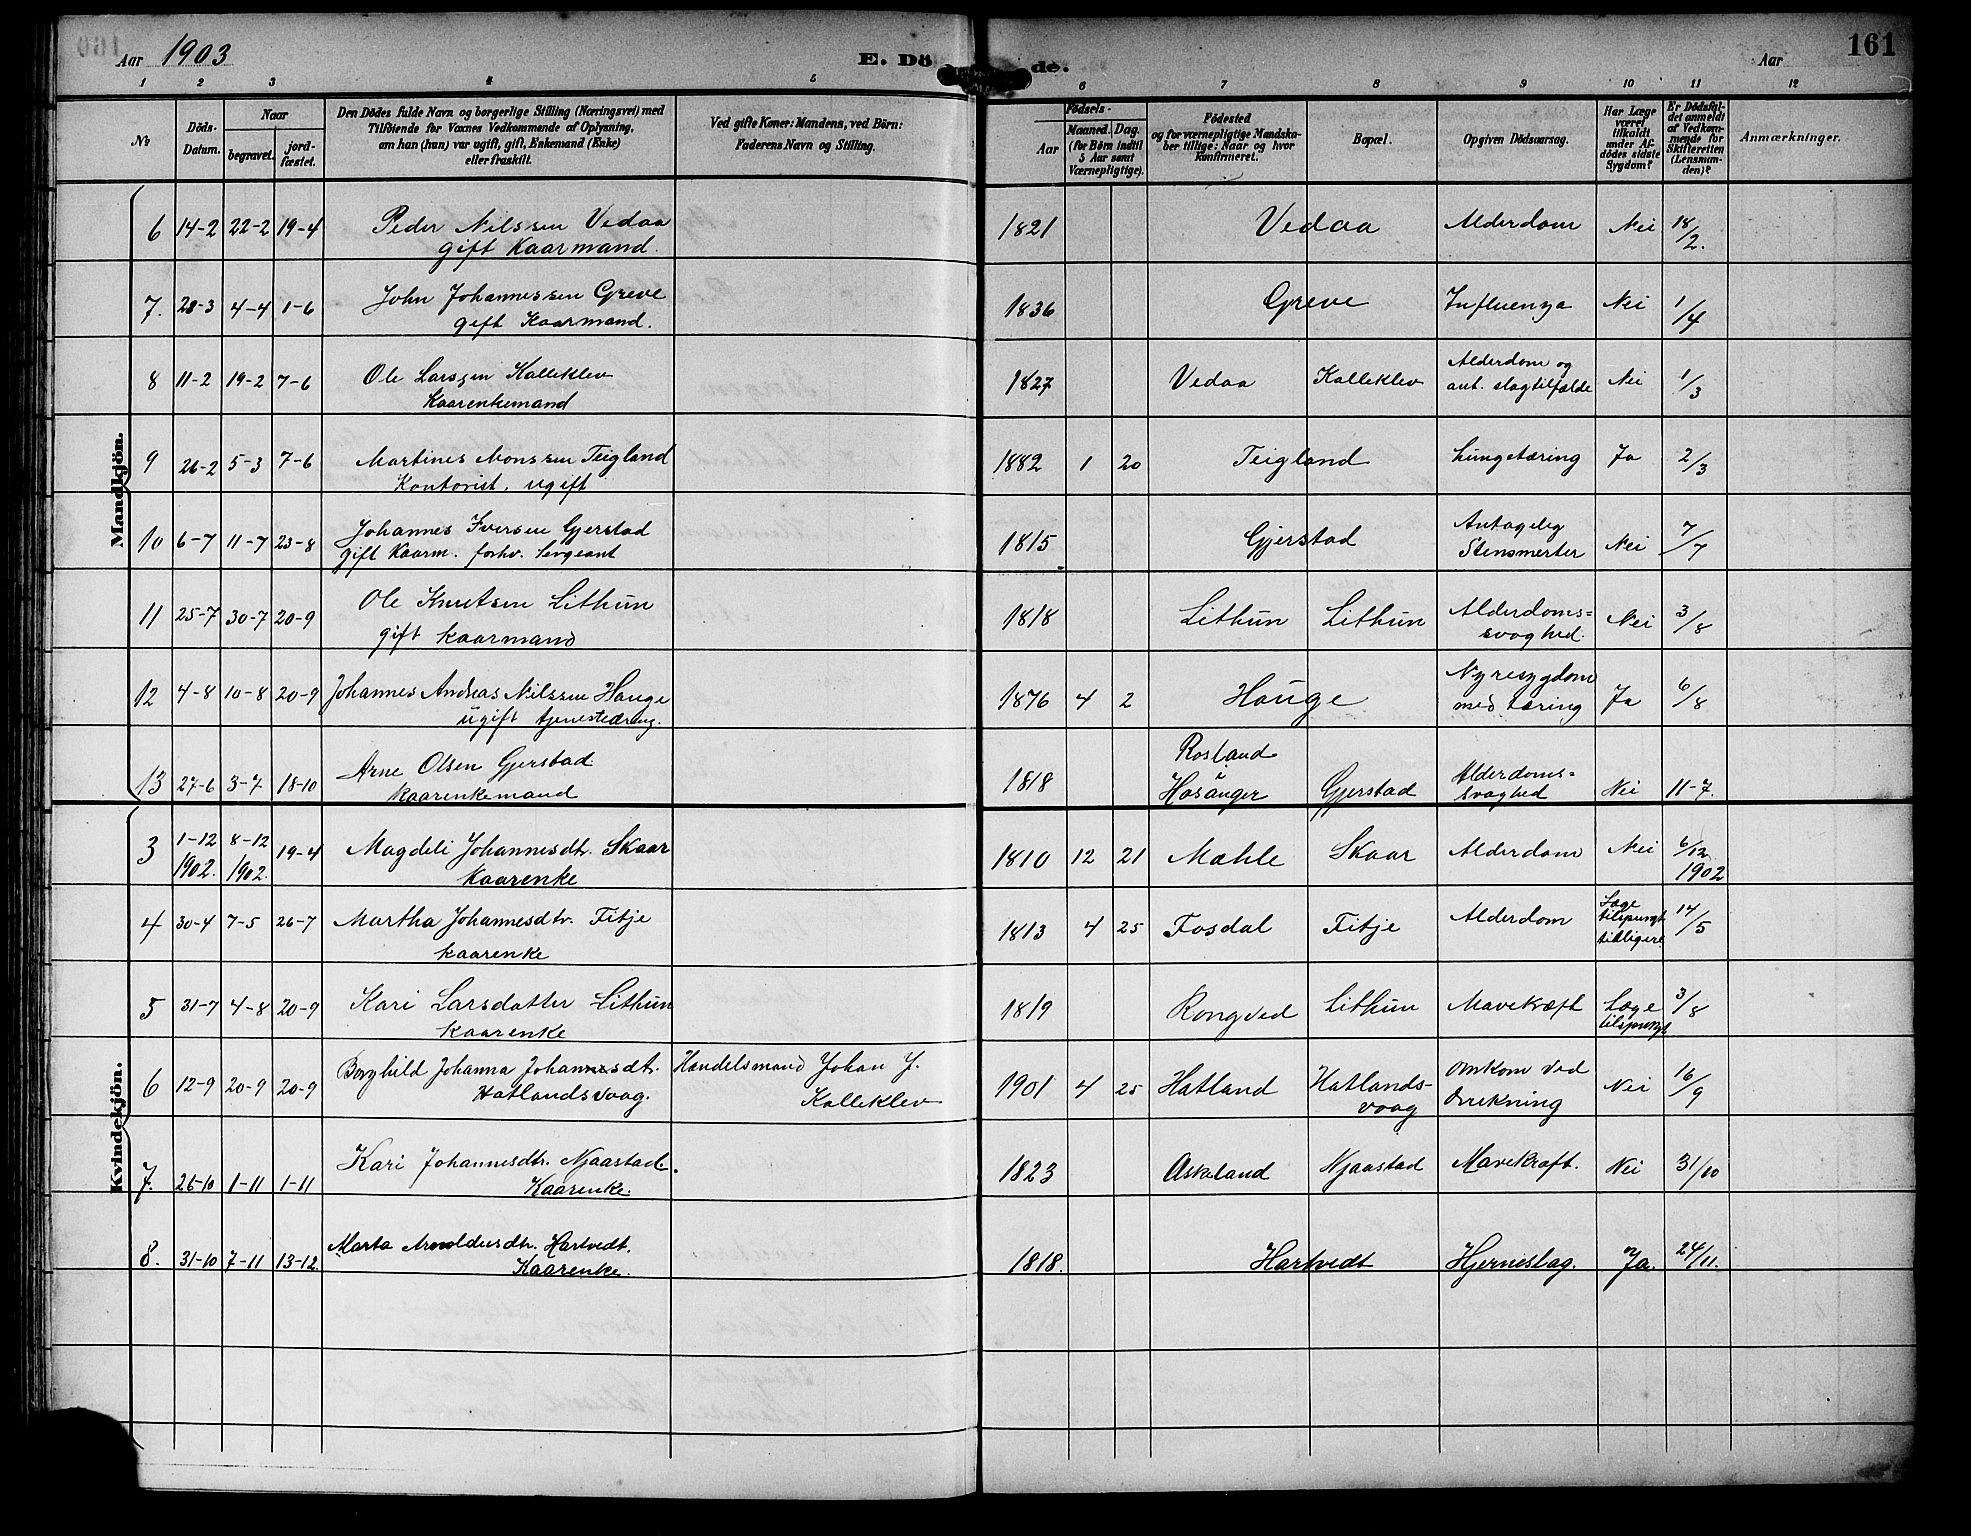 160
Aar 1903
E. Dö de.
Aar
161
1 2 3 4 5 6 7 8 9 10 11 12
No
Döds-
Datum.
Naar
begravet.
jord-
fæstet.
Den Dödes fulde Navn og borgerlige Stilling (Næringsvei) med
Tilföiende for Voxnes Vedkommende af Oplysning,
om han (hun) var ugift, gift, Enkemand (Enke)
eller fraskilt.
Ved gifte Koner: Mandens, ved Börn:
Faderens Navn og Stilling.
Födsels-
Aar
Maaned. Dag.
(for Börn indtil
5 Aar samt
Værnepligtige).
Födested
og for værnepligtige Mandska-
ber tillige: Naar og hvor
konfirmeret.
Bopæl.
Opgiven Dödsaarsag.
Har Læge
været
tilkaldt
under Af-
dödes sidste
Sygdom?
Er Dödsfal-
det anmeldt
af Vedkom-
mende for
Skifteretten
(Lensman-
den)?
Anmærkninger.
Mandkjön.
6 14-2 22-2 19-4 Peder Nilssen Vedaa 1821 Vedaa Alderdom Nei 18/2.
gift Kaarmand.
7. 28-3 4-4 1-6 John Johannessen Greve 1836 Greve Influenza Nei 1/4
gift Kaarmand.
8 11-2 19-2 7-6 Ole Larssen Kalleklev 1827 Vedaa Kalleklev Alderdom og Nei 1/3
Kaarenkemand ant. slagtilfælde
9 26-2 5-3 7-6 Martines Monssen Teigland 1882 1 20 Teigland Lungetæring Ja 2/3
Kontorist. ugift
10 6-7 11-7 23-8 Johannes Iversen Gjerstad 1815 Gjerstad Antagelig Nei 7/7
gift Kaarm. forhv. Sergeant Stensmerter
11 25-7 30-7 20-9 Ole Knutsen Lithun 1818 Lithun Lithun Alderdoms= Nei 3/8
gift kaarmand svaghed.
12 4-8 10-8 20-9 Johannes Andreas Nilssen Hauge 1876 4 2 Hauge Nyresygdom Ja 6/8
ugift tjenestedreng. med tæring
13 27-6 3-7 18-10 Arne Olsen Gjerstad 1818 Rosland Gjerstad Alderdoms= Nei 11-7.
kaarenkemand Hosanger svaghed
Kvindekjön.
3 1-12 8-12 19-4 Magdeli Johannesdtr. Skaar 1810 12 21 Mæhle Skaar Alderdom Nei 6/12
1902. 1902. Kaarenke 1902
4 30-4 7-5 26-7 Martha Johannesdtr. Fitje 1813 4 25 Fosdal Fitje Alderdom Læge 14/5
kaarenke tilspurgt
tidligere
5 31-7 4-8 20-9 Kari Larsdatter Lithun 1819 Rongved Lithun Mavekræft Læge 3/8
kaarenke tilspurgt
6 12-9 20-9 20-9 Borghild Johanna Johannesdtr. Handelsmand Johan J. 1901 4 25 Hatland Hatlands- Omkom ved Nei 16/9
Hatlandsvaag. Kalleklev vaag Drukning
7. 26-10 1-11 1-11 Kari Johannesdtr. Njaastad. 1823 Askeland Njaastad Mavekræft. Nei 31/10
Kaarenke.
8. 31-10 7-11 13-12. Marta Arnoldusdtr. Hartvedt. 1818. Hartvedt Hjerneslag. Ja. 24/11.
Kaarenke.